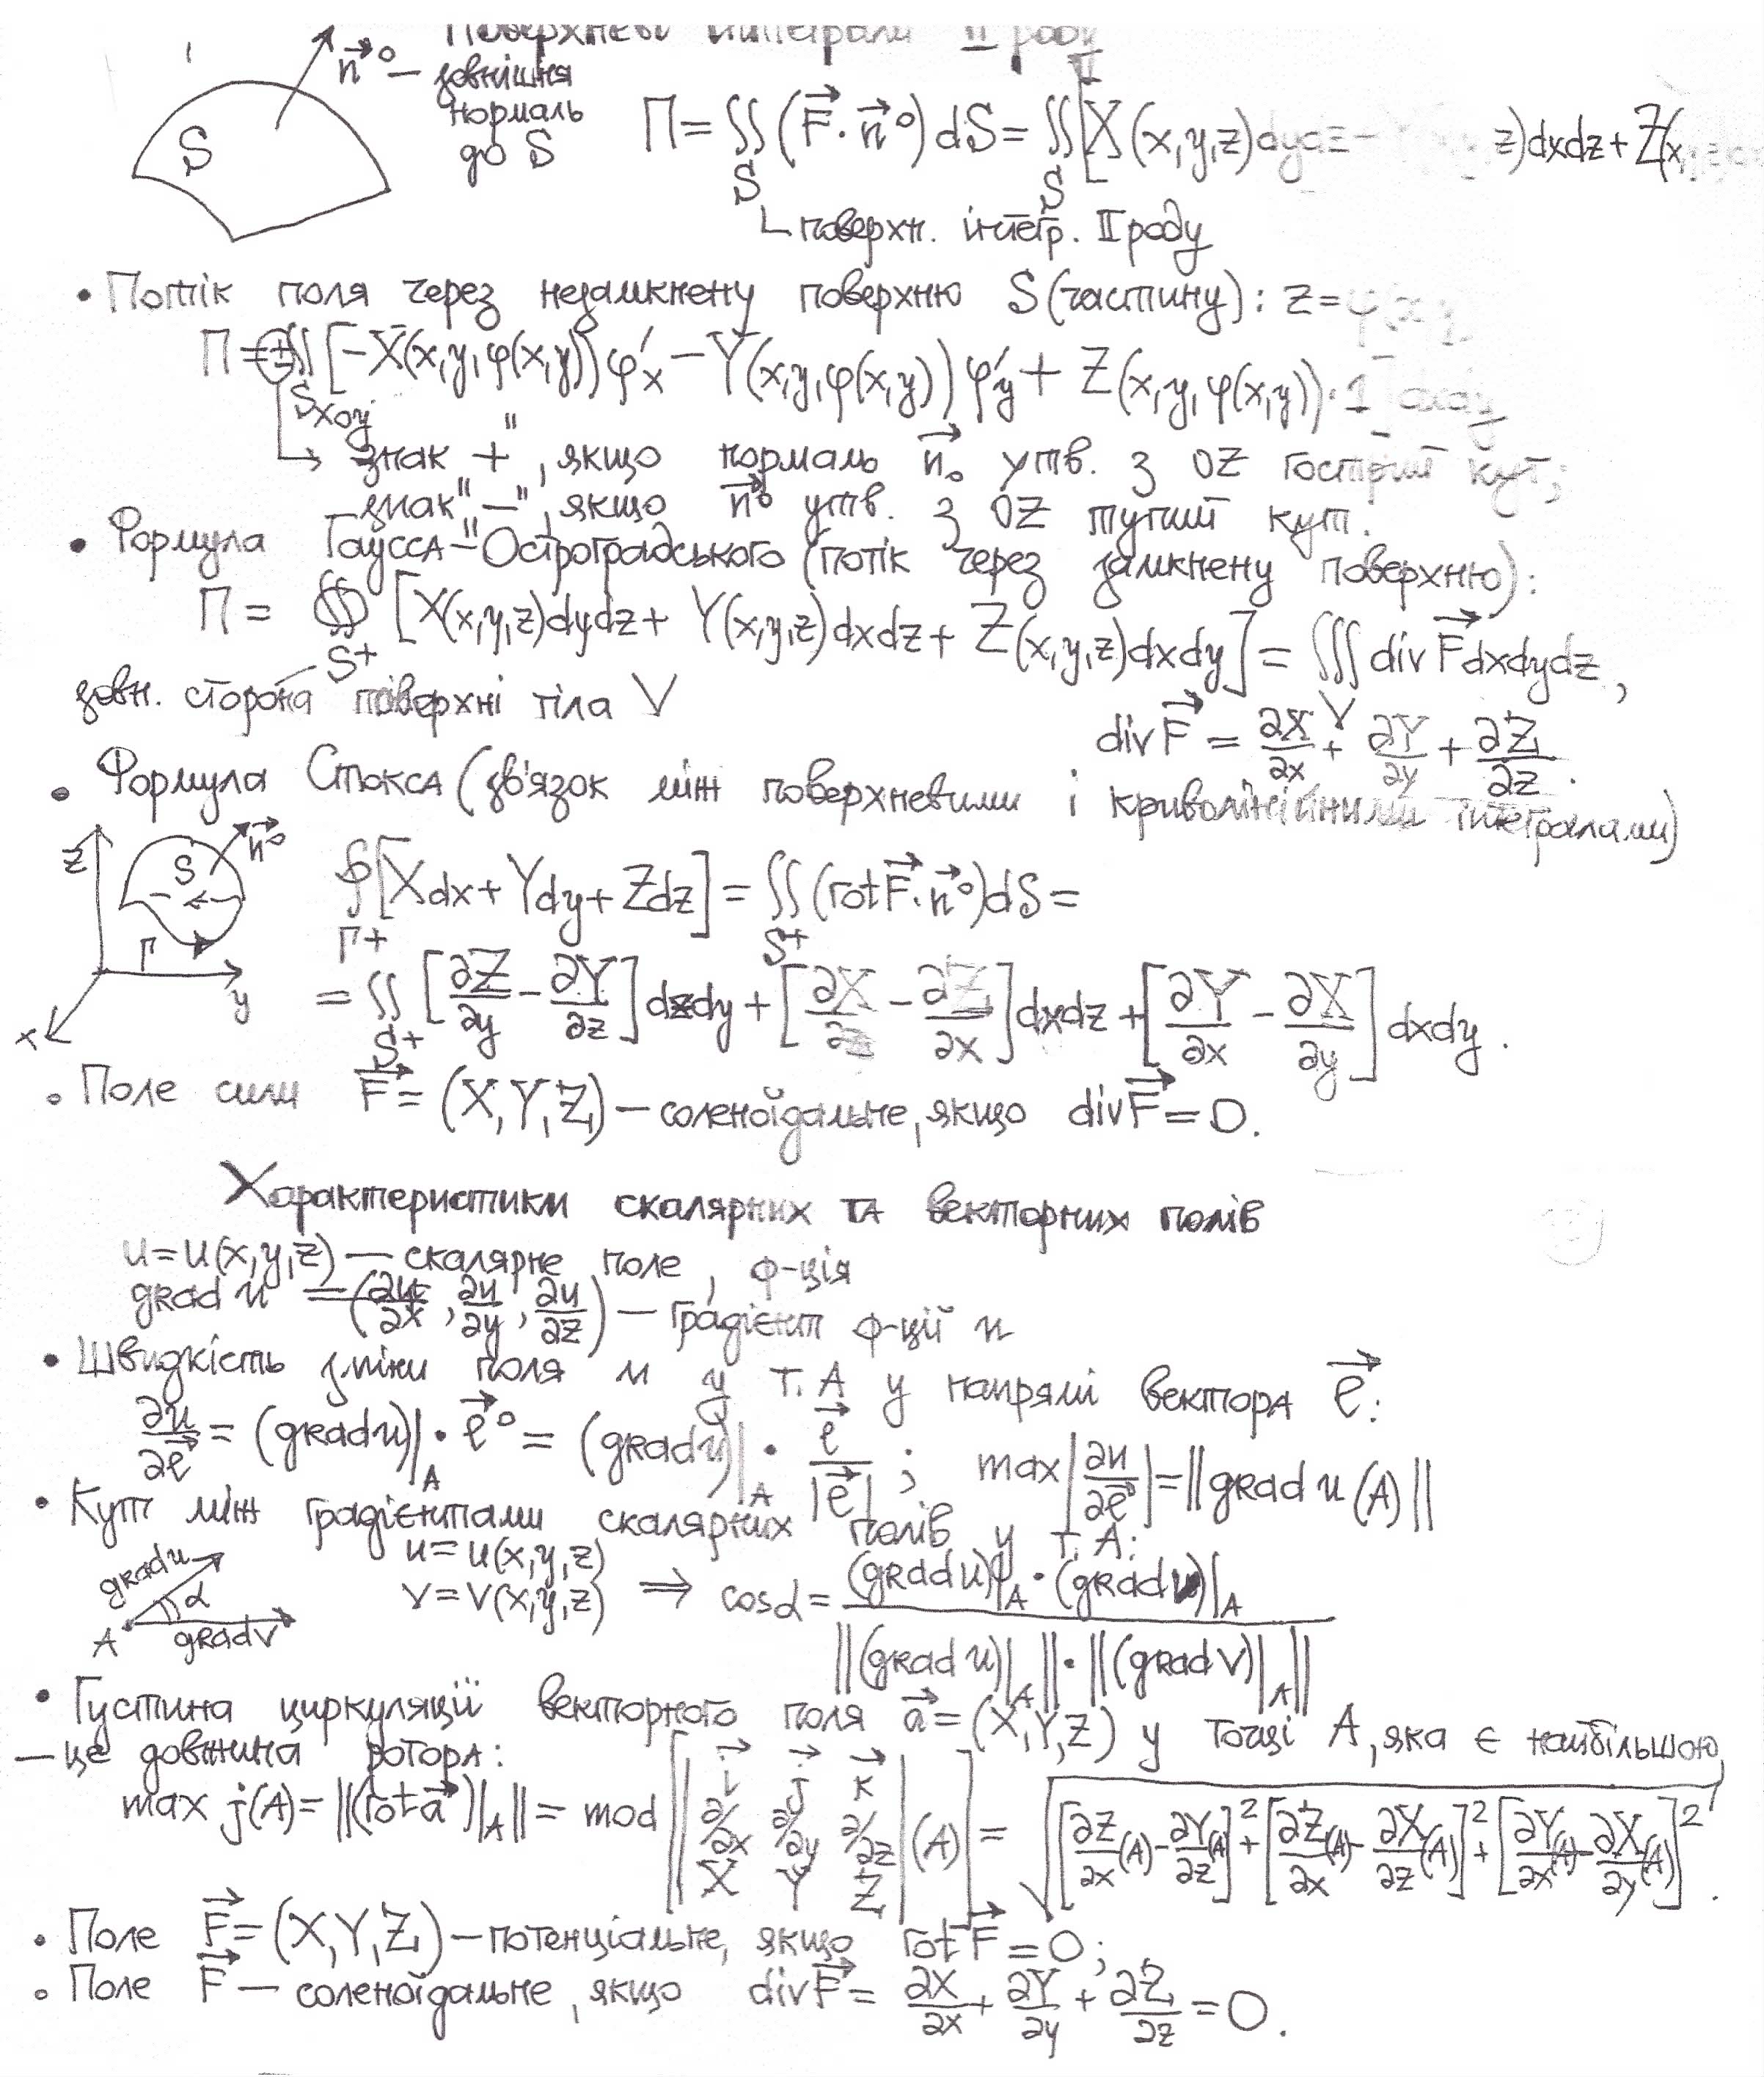 Поверхневі інтеграли II роду
n⃗° — зовнішня
нормаль
до S
S
П = ∬_S (F⃗·n⃗°) dS = ∬_S [X(x,y,z)dydz z)dxdz + Z(x,
поверхн. інтегр. II роду
• Потік поля через незамкнену поверхню S (частину): z = φ(x,y
П = ± ∬_Sxoy [−X(x,y,φ(x,y)) φ'x − Y(x,y,φ(x,y)) φ'y + Z(x,y,φ(x,y))·1] dxdy
↳ знак "+", якщо нормаль n⃗₀ утв. з OZ гострий кут;
знак "—", якщо n⃗° утв. з OZ тупий кут.
• Формула Гаусса-Остроградського (потік через замкнену поверхню):
П = ∯_S+ [X(x,y,z)dydz + Y(x,y,z)dxdz + Z(x,y,z)dxdy] = ∭_V div F⃗ dxdydz,
зовн. сторона поверхні тіла V
div F⃗ = ∂X/∂x + ∂Y/∂y + ∂Z/∂z.
• Формула Стокса (зв'язок між поверхневими і криволінійними інтегралами)
z S n⃗° Γ y x
∮_Γ+ [Xdx + Ydy + Zdz] = ∬_S+ (rot F⃗·n⃗°)dS =
= ∬_S+ [∂Z/∂y − ∂Y/∂z] dzdy + [∂X/∂z − ∂Z/∂x] dxdz + [∂Y/∂x − ∂X/∂y] dxdy.
• Поле сили F⃗ = (X,Y,Z) — соленоїдальне, якщо div F⃗ = 0.
Характеристики скалярних та векторних полів
u = u(x,y,z) — скалярне поле, ф-ція
grad u = (∂u/∂x, ∂u/∂y, ∂u/∂z) — градієнт ф-ції u
• Швидкість зміни поля u у т. A у напрямі вектора e⃗:
∂u/∂e⃗ = (grad u)|_A · e⃗° = (grad u)|_A · e⃗/|e⃗| ; max|∂u/∂e⃗| = ||grad u (A)||
• Кут між градієнтами скалярних полів у т. A:
grad u α A grad v
u = u(x,y,z)
v = v(x,y,z) ⇒ cosα = (grad u)|_A · (grad v)|_A / ||(grad u)|_A|| · ||(grad v)|_A||
• Густина циркуляції векторного поля a⃗ = (X,Y,Z) у точці A, яка є найбільшою,
— це довжина ротора:
max j(A) = ||(rot a⃗)|_A|| = mod [| i⃗ j⃗ k⃗ ; ∂/∂x ∂/∂y ∂/∂z ; X Y Z | (A)] = √([∂Z/∂x(A) − ∂Y/∂z(A)]² + [∂Z/∂x(A) − ∂X/∂z(A)]² + [∂Y/∂x(A) − ∂X/∂y(A)]²).
• Поле F⃗ = (X,Y,Z) — потенціальне, якщо rot F⃗ = 0;
• Поле F⃗ — соленоїдальне, якщо div F⃗ = ∂X/∂x + ∂Y/∂y + ∂Z/∂z = 0.